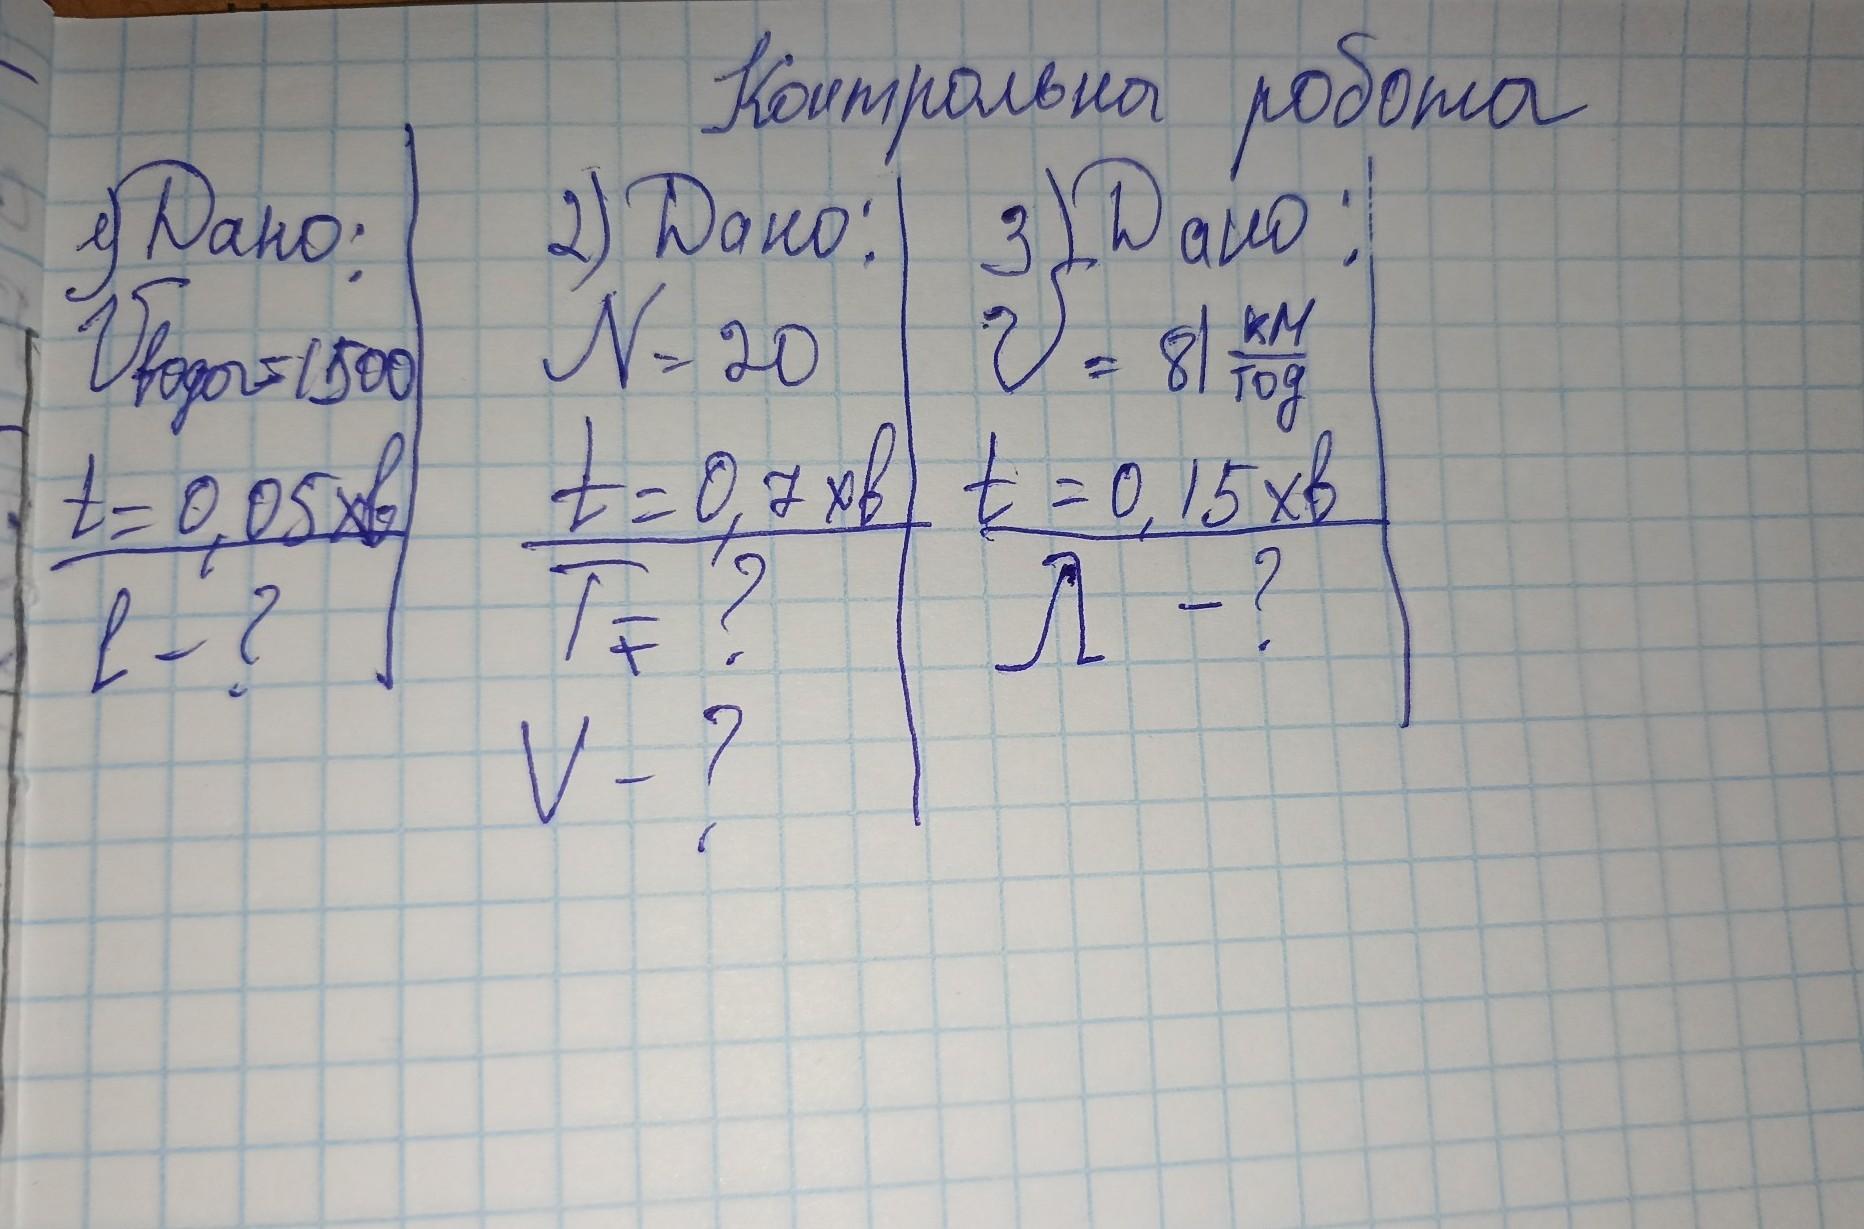 Контрольна робота
1) Дано:
Vводи=1500
t=0,05хв
l-?
2) Дано:
N=20
t=0,7хв
T=?
V-?
3) Дано:
V=81 км/год
t=0,15хв
Л-?